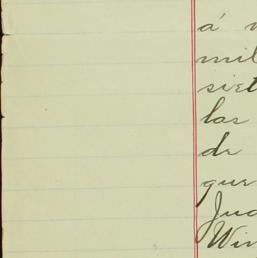 á
mil
siet
las
de
que
Jua
Win